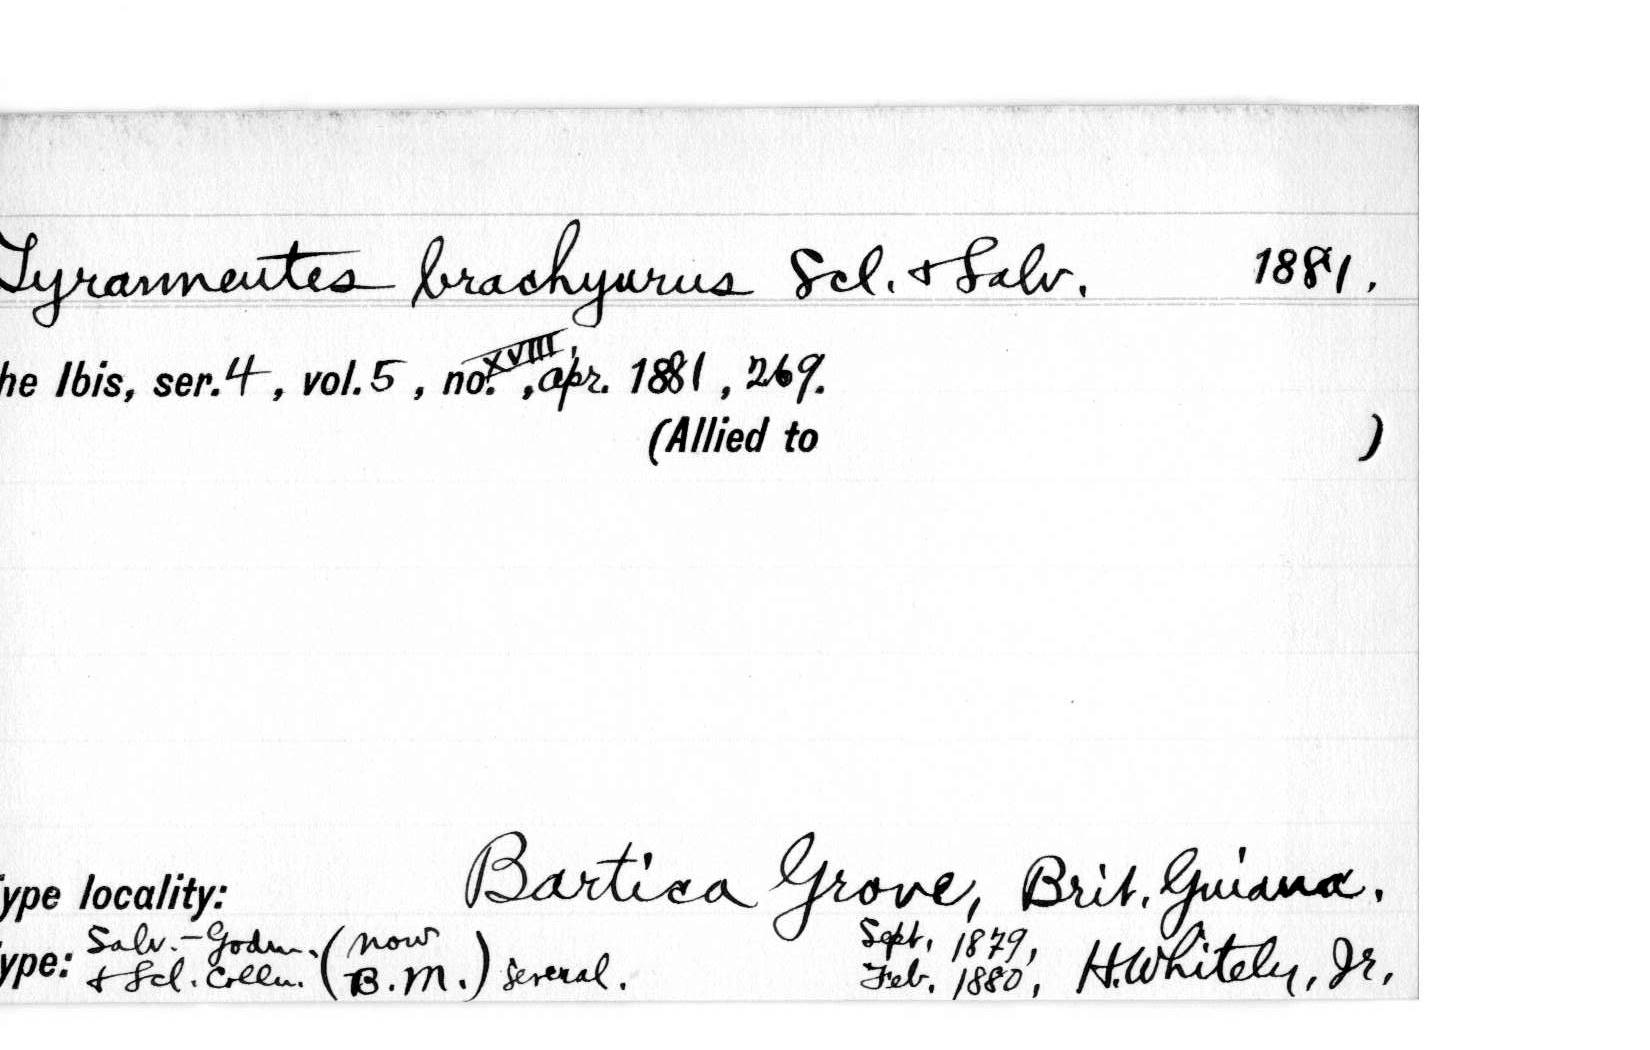 Tyranneutes brachyurus Scl. & Salv. 1881.
he Ibis, ser. 4, vol. 5, no. XVIII, apr. 1881, 269.
(Allied to )
ype locality: Bartica Grove, Brit. Guiana.
ype: Salv.-Godm. & Scl. Colln. (now B.M.) several. Sept. 1879, Feb. 1880, H. Whitely, Jr.